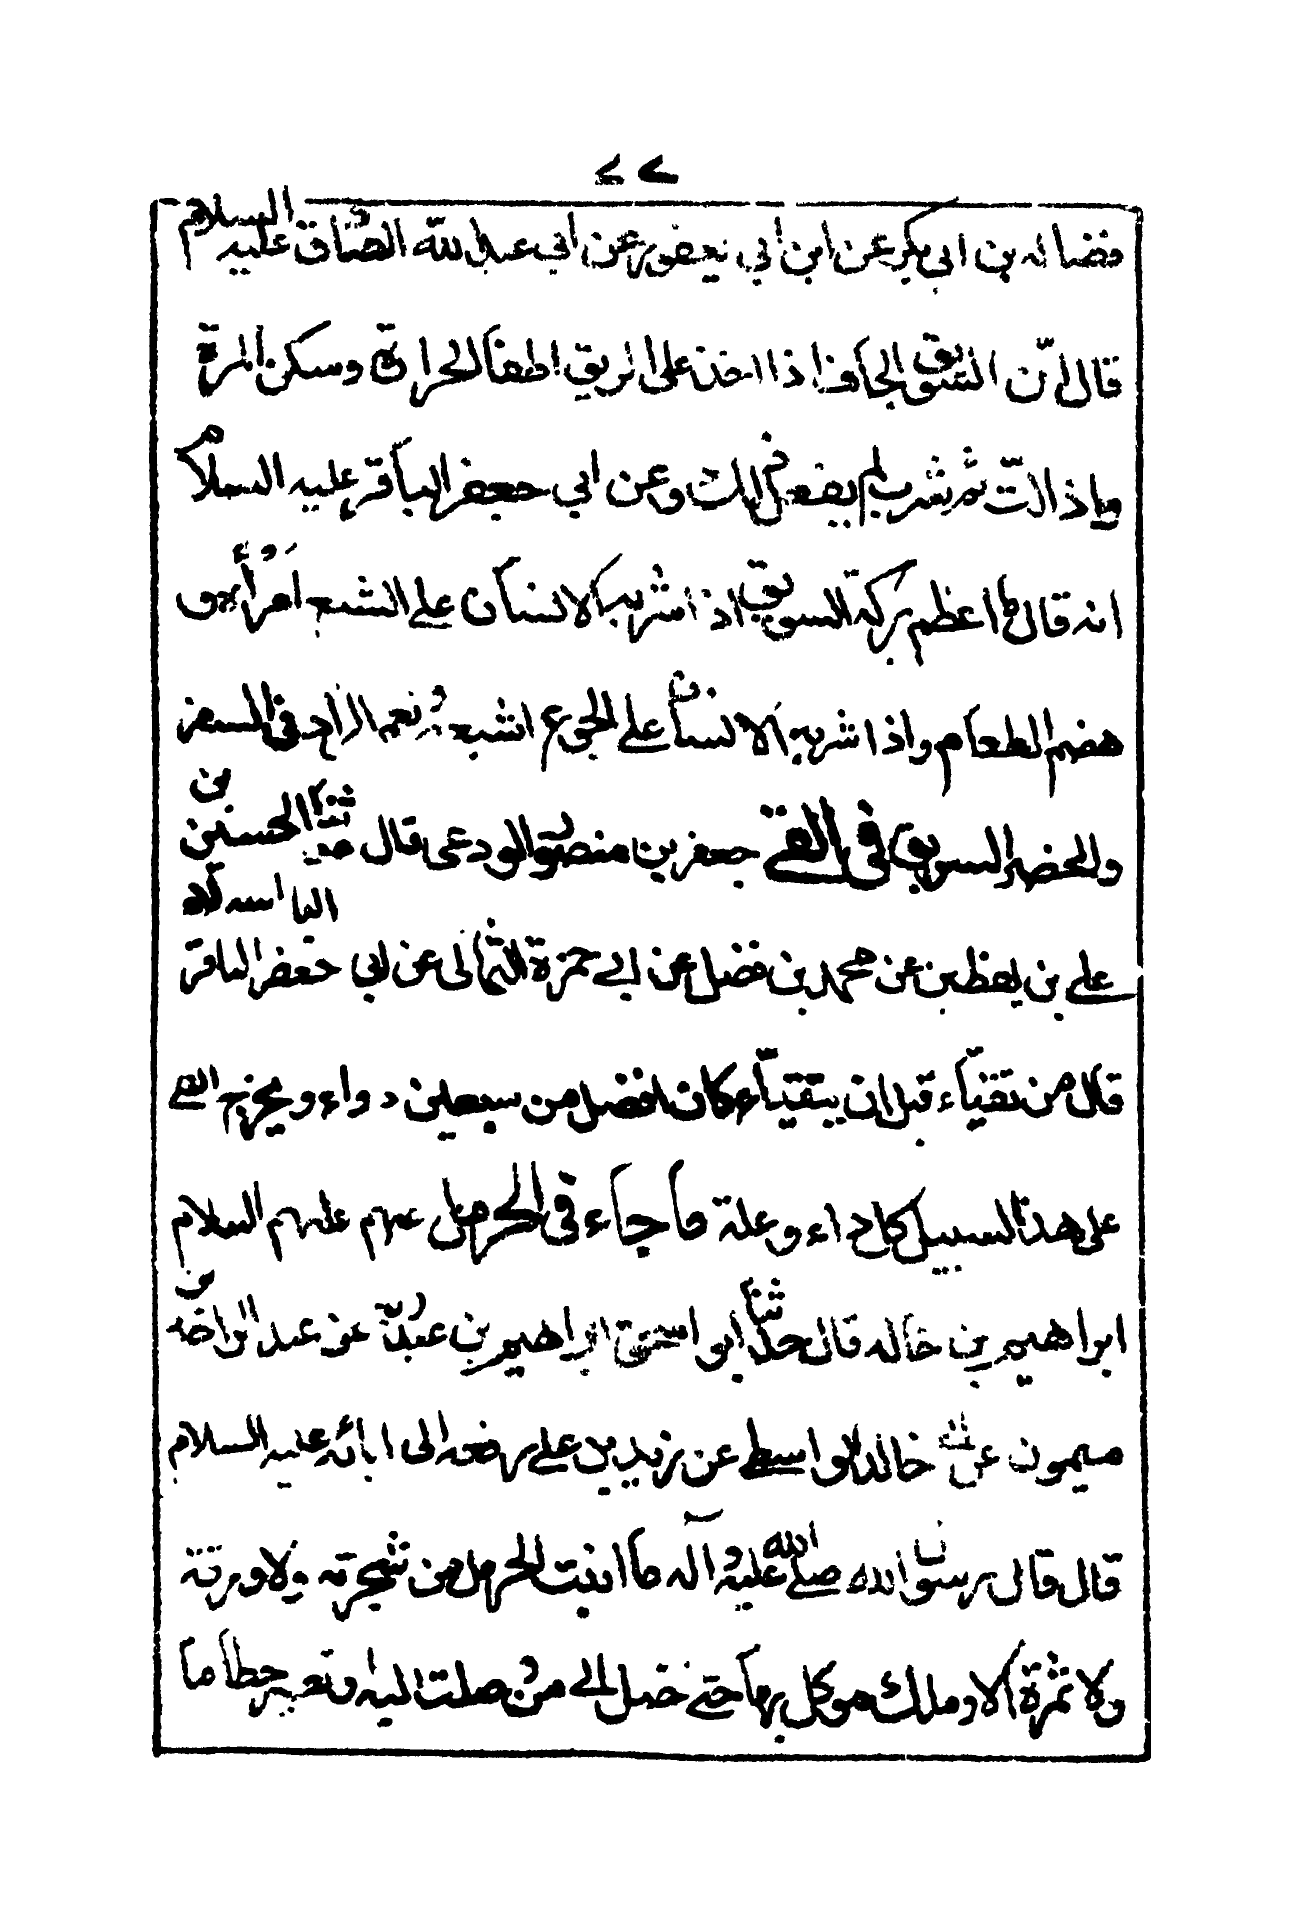 فضاله بن ابى بكير عن ابن ابي يعفور عن ابي عبدالله الصادق عليه السلام
قال ان السويق الجاف اذا اخذ على الريق اطفأ الحرارة وسكن المرة
واذا لت ثم شرب لم يفعل ذلك وعن ابي جعفر الباقر عليه السلام
انه قال ما اعظم بركة السويق اذا شربه الانسان على الشبع امرأ وهو
هضم الطعام واذا شربه الانسان على الجوع اشبعه ونعم الزاد في السفر
والحضر السويق في القئ جعفر بن منصور الودعى قال حدثنا الحسين بن
علي بن يقطين عن محمد بن فضل عن ابي حمزة الثمالى عن ابي جعفر الباقر
قال من تقيأء قبل ان يتقيأء كان افضل من سبعين دواء ويخرج القئ
على هذا السبيل كل داء وعلة ما جاء في الحرمل عنهم عليهم السلام
ابراهيم بن خاله قال حدثنا ابو اسحق ابراهيم بن عبد عن عبد بن
ميمون عن خالد الواسطي عن زيد بن علي رفعه الى ابائه عليه السلام
قال قال رسول الله صلى الله عليه وآله ما انبت الحرمل من شجرته ولا ورقة
ولا ثمرة الا وملك موكل بها حتى تصل الى من وصلت اليه وتصير حطاما